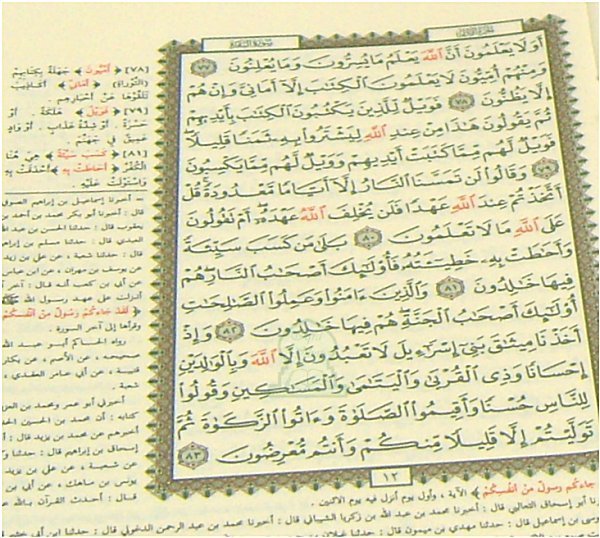 سورة البقرة
أَوَلَا يَعْلَمُونَ أَنَّ ٱللَّهَ يَعْلَمُ مَا يُسِرُّونَ وَمَا يُعْلِنُونَ ٧٧
وَمِنْهُمْ أُمِّيُّونَ لَا يَعْلَمُونَ ٱلْكِتَٰبَ إِلَّآ أَمَانِىَّ وَإِنْ هُمْ
إِلَّا يَظُنُّونَ ٧٨ فَوَيْلٌ لِّلَّذِينَ يَكْتُبُونَ ٱلْكِتَٰبَ بِأَيْدِيهِمْ
ثُمَّ يَقُولُونَ هَٰذَا مِنْ عِندِ ٱللَّهِ لِيَشْتَرُوا۟ بِهِۦ ثَمَنًا قَلِيلًا
فَوَيْلٌ لَّهُم مِّمَّا كَتَبَتْ أَيْدِيهِمْ وَوَيْلٌ لَّهُم مِّمَّا يَكْسِبُونَ
٧٩ وَقَالُوا۟ لَن تَمَسَّنَا ٱلنَّارُ إِلَّآ أَيَّامًا مَّعْدُودَةً قُلْ
أَتَّخَذْتُمْ عِندَ ٱللَّهِ عَهْدًا فَلَن يُخْلِفَ ٱللَّهُ عَهْدَهُۥٓ أَمْ تَقُولُونَ
عَلَى ٱللَّهِ مَا لَا تَعْلَمُونَ ٨٠ بَلَىٰ مَن كَسَبَ سَيِّئَةً
وَأَحَٰطَتْ بِهِۦ خَطِيٓـَٔتُهُۥ فَأُو۟لَٰٓئِكَ أَصْحَٰبُ ٱلنَّارِ هُمْ
فِيهَا خَٰلِدُونَ ٨١ وَٱلَّذِينَ ءَامَنُوا۟ وَعَمِلُوا۟ ٱلصَّٰلِحَٰتِ
أُو۟لَٰٓئِكَ أَصْحَٰبُ ٱلْجَنَّةِ هُمْ فِيهَا خَٰلِدُونَ ٨٢ وَإِذْ
أَخَذْنَا مِيثَٰقَ بَنِىٓ إِسْرَٰٓءِيلَ لَا تَعْبُدُونَ إِلَّا ٱللَّهَ وَبِٱلْوَٰلِدَيْنِ
إِحْسَانًا وَذِى ٱلْقُرْبَىٰ وَٱلْيَتَٰمَىٰ وَٱلْمَسَٰكِينِ وَقُولُوا۟
لِلنَّاسِ حُسْنًا وَأَقِيمُوا۟ ٱلصَّلَوٰةَ وَءَاتُوا۟ ٱلزَّكَوٰةَ ثُمَّ
تَوَلَّيْتُمْ إِلَّا قَلِيلًا مِّنكُمْ وَأَنتُم مُّعْرِضُونَ ٨٣
١٢
[٧٨] ﴿ أُمِّيُّونَ ﴾ جهلة بكتابهم
(التوراة) ﴿ أماني ﴾ أكاذيب
تلقوها عن أحبارهم .
[٧٩] ﴿ فويل ﴾ هلكة . أو
حسرة . أو شدة عذاب . أو واد
عميق في جهنم .
[٨١] ﴿ كسب سيئة ﴾ هي هنا
الكفر ﴿ أحاطت به ﴾ أحدقت به
واستولت عليه .
أخبرنا إسماعيل بن إبراهيم الصوفي
قال : أخبرنا أبو بكر محمد بن أحمد بن
يعقوب قال : حدثنا الحسن بن
العبدي قال : حدثنا مسلم بن إبراهيم
قال : حدثنا شعبة ، عن علي بن زيد
عن يوسف بن مهران ، عن ابن عباس
عن أبي بن كعب أنه قال : آخر
أنزلت على عهد رسول الله ﷺ
﴿ لقد جاءكم رسول من أنفسكم ﴾
وقرأها إلى آخر السورة .
رواه الحاكم أبو عبد الله
صحيحه ، عن الأصم ، عن بكار
قتيبة ، عن أبي عامر العقدي ،
شعبة .
أخبرني أبو عمر ومحمد بن
كتابه : أن محمد بن الحسين
أخبرهم عن محمد بن يزيد قال :
إسحاق بن إبراهيم قال : حدثنا
عن شعبة ، عن علي بن زيد
يونس بن ماهك ، عن أبي بن
قال : أحدث القرآن بالله
جاءكم رسول من أنفسكم ﴾ الآية ، وأول يوم أنزل فيه يوم الاثنين .
أبو إسحاق الثعالبي قال : أخبرنا محمد بن عبد الله بن زكريا الشيباني قال : أخبرنا محمد بن عبد الرحمن الدغولي قال :
موسى بن إسماعيل قال : حدثنا مهدي بن ميمون قال : حدثنا غيلان بن